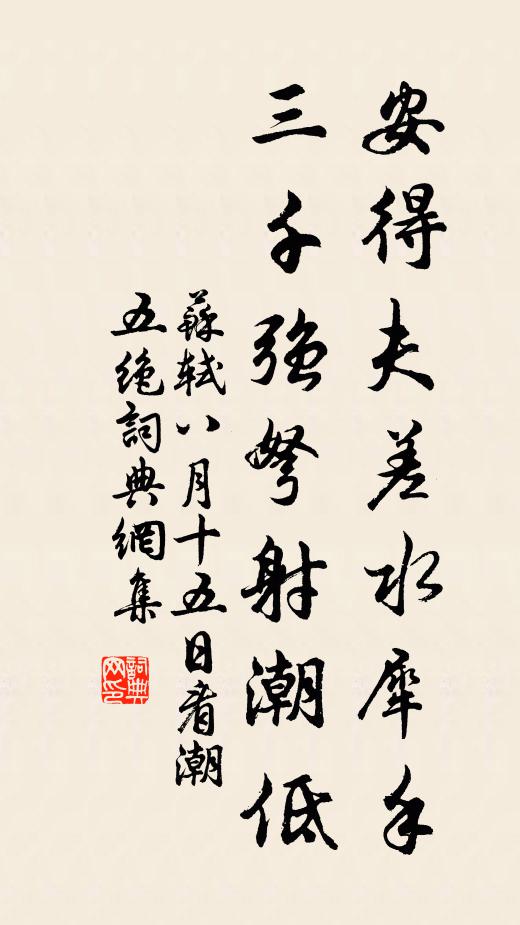 安得夫差水犀手
三千強弩射潮低
蘇軾八月十五日看潮
五絕詞典網集
詞典网印